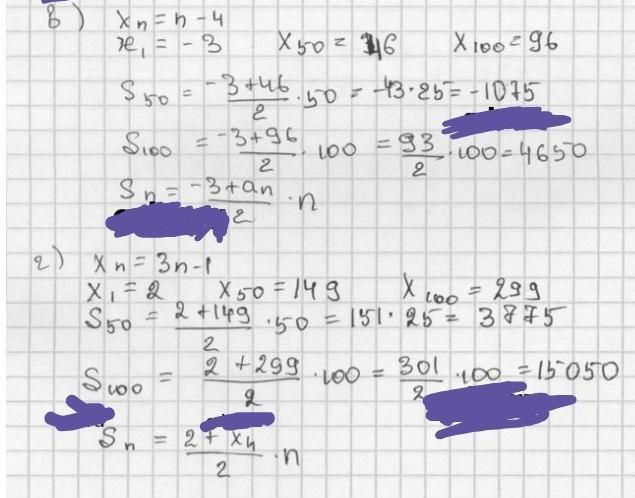 в) xn = n - 4
x1 = -3 x50 = 46 x100 = 96
S50 = (-3+46)/2 · 50 = -43·25 = -1075
S100 = (-3+96)/2 · 100 = 93/2 · 100 = 4650
Sn = (-3+an)/2 · n
г) xn = 3n-1
x1 = 2 x50 = 149 x100 = 299
S50 = (2+149)/2 · 50 = 151·25 = 3775
S100 = (2+299)/2 · 100 = 301/2 · 100 = 15050
Sn = (2+xn)/2 · n